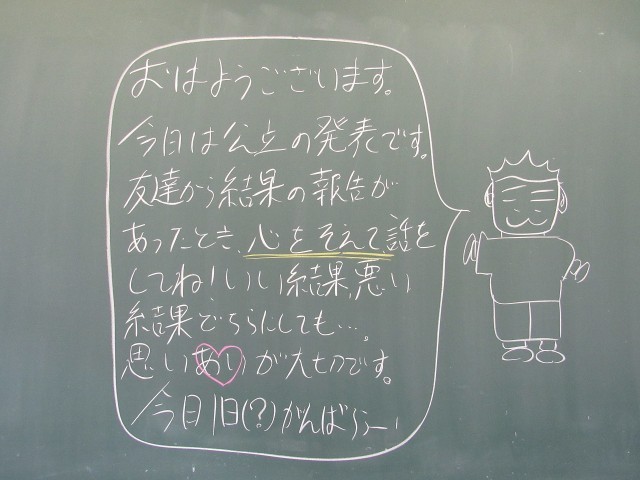 おはようございます。
今日は公立の発表です。
友達から結果の報告が
あったとき、心をそえて話を
してね!いい結果、悪い
結果どちらにしても…。
思いあいが大切です。
今日1日(?)がんばろうー!